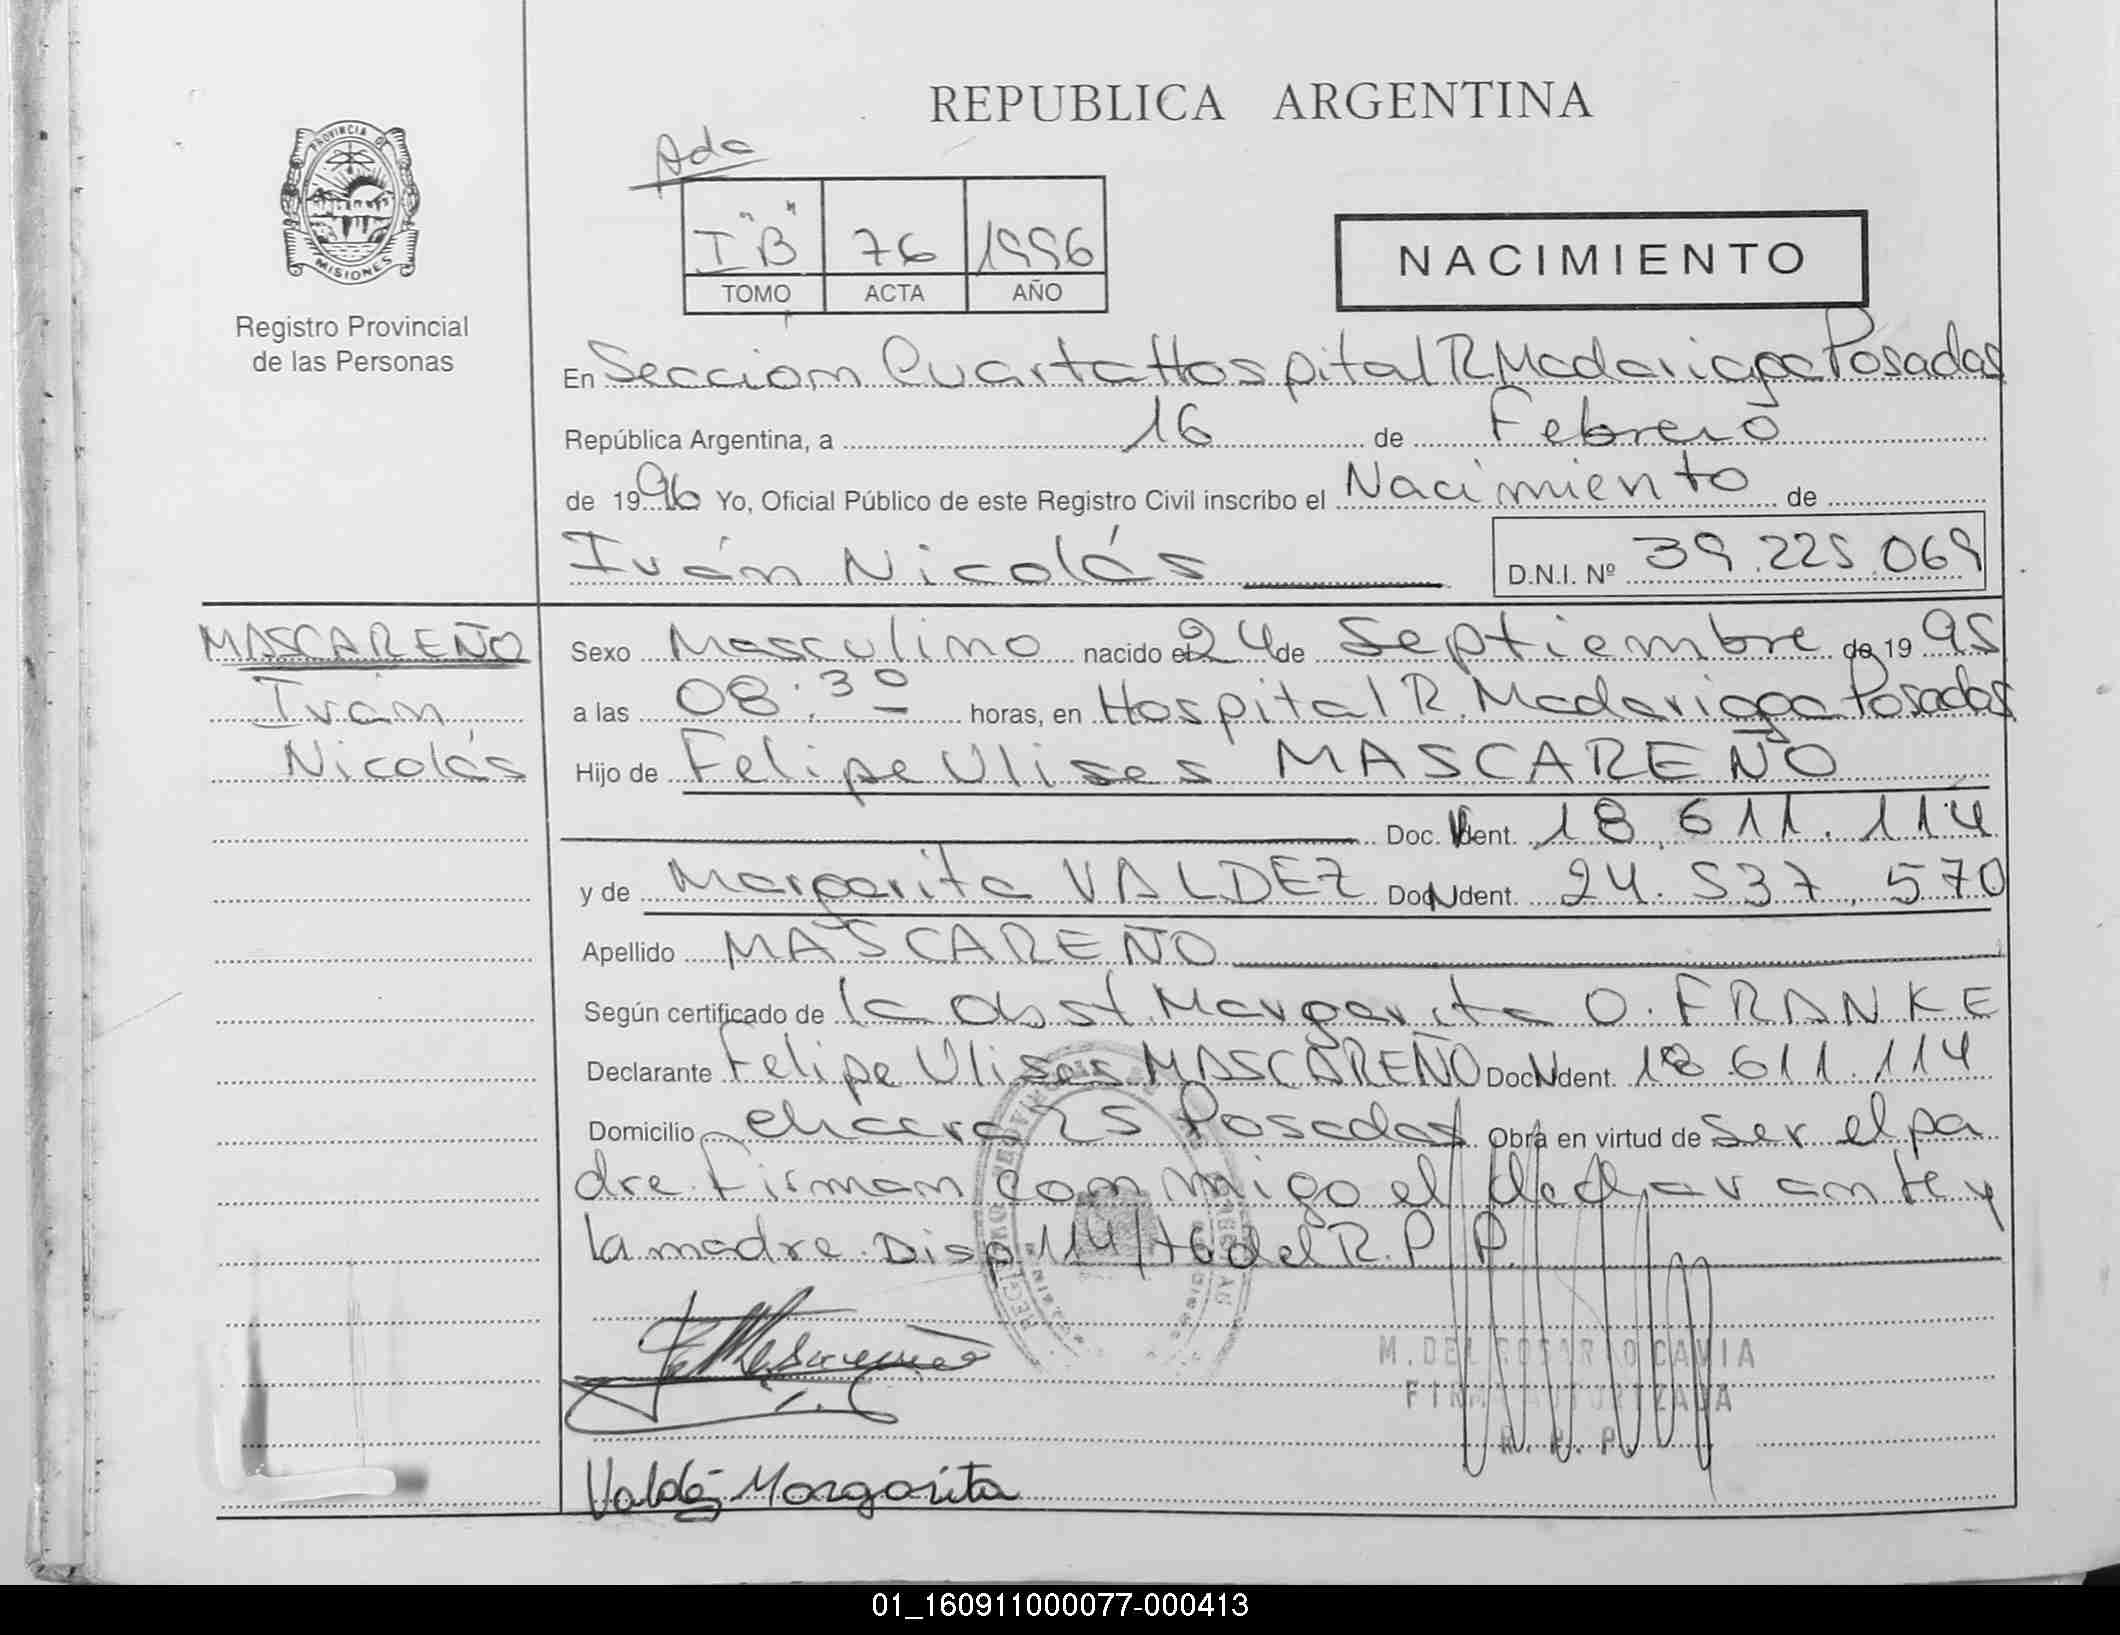 REPUBLICA ARGENTINA
PROVINCIA DE
MISIONES
Registro Provincial
de las Personas
Ada
I "B" 76 1996
TOMO ACTA AÑO
NACIMIENTO
En Sección Cuarta Hospital R. Madariaga Posadas
República Argentina, a 16 de Febrero
de 1996 Yo, Oficial Público de este Registro Civil inscribo el Nacimiento de
Iván Nicolás D.N.I. Nº 39.225.069
MASCAREÑO
Iván
Nicolás
Sexo Masculino nacido el 24 de Septiembre de 1995
a las 08:30 horas, en Hospital R. Madariaga Posadas
Hijo de Felipe Ulises MASCAREÑO
Doc. Ident. 18.611.114
y de Margarita VALDEZ Doc. Ident. 24.537.570
Apellido MASCAREÑO
Según certificado de la Obst. Margarita O. FRANKE
Declarante Felipe Ulises MASCAREÑO Doc. Ident. 18.611.114
Domicilio chacra 25 Posadas Obra en virtud de ser el pa
dre. Firman conmigo el declarante y
la madre. Disp 114/76 del R.P.P.
M. DEL ROSARIO CAVIA
FIRMA AUTORIZADA
R. P. P.
Valdéz Margarita
01_160911000077-000413